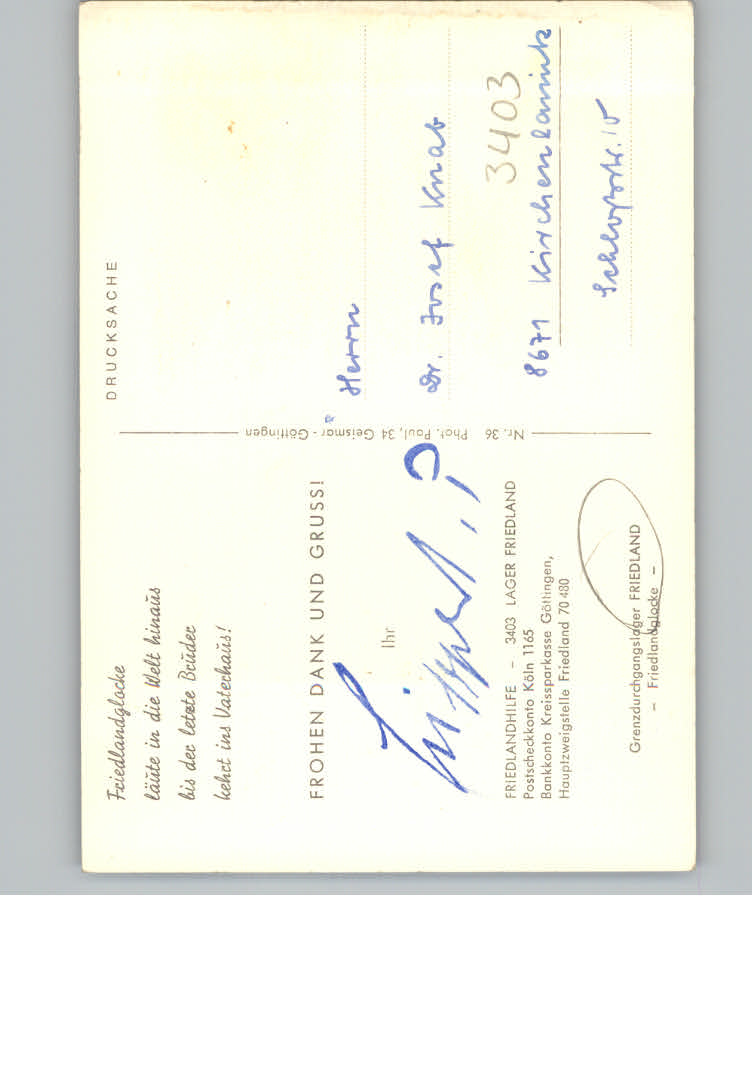 Friedlandglocke
läute in die Welt hinaus
bis der letzte Bruder
kehrt ins Vaterhaus!
FROHEN DANK UND GRUSS!
Ihr
FRIEDLANDHILFE – 3403 LAGER FRIEDLAND
Postscheckkonto Köln 1165
Bankkonto Kreissparkasse Göttingen,
Hauptzweigstelle Friedland 70 480
Grenzdurchgangslager FRIEDLAND
– Friedlandglocke –
Nr. 36 Phot. Paul, 34 Geismar - Göttingen
DRUCKSACHE
Herrn
Dr. Josef Knab
3403
8671 Kirchenlamitz
Schloßstr. 15